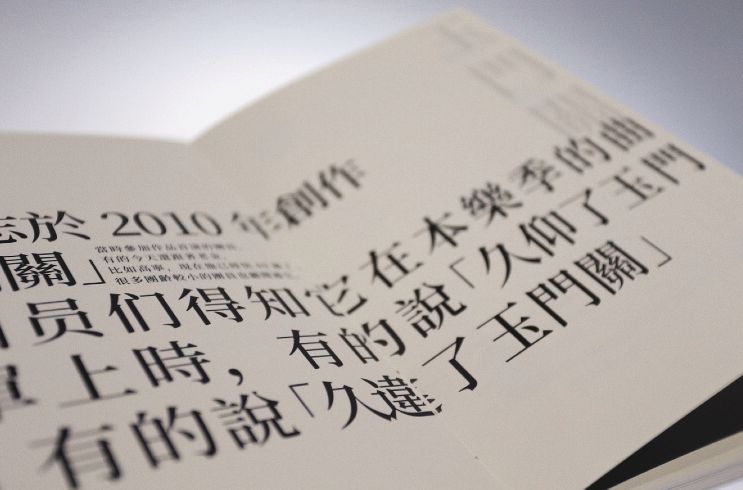 玉門關
志於 2010 年創作
關」
當時參加作品首演的團員，
有的今天還跟著老京，
比如高寧，現在他已經快
很多團齡較小的團員也聽得
员们得知它在本樂季的曲
單上時，有的說「久仰了玉門
有的說「久違了玉門關」